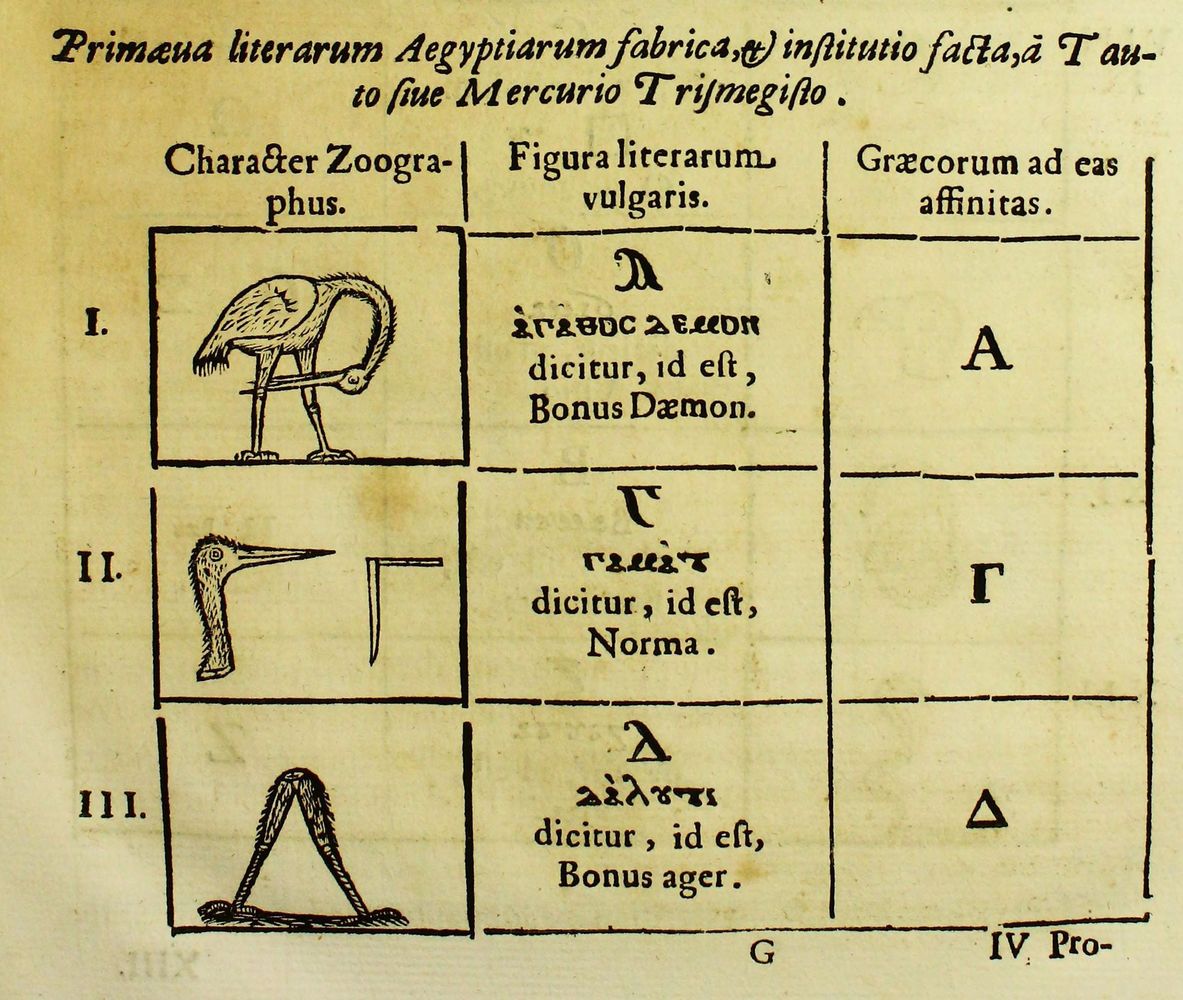 Primæua literarum Aegyptiarum fabrica, & inſtitutio facta, à Tau-
to ſiue Mercurio Triſmegiſto.
Character Zoogra-
phus.
Figura literarum
vulgaris.
Græcorum ad eas
affinitas.
I.
Ⲁ
ⲁ̀ⲅⲁ̀ⲑⲟⲥ ⲇⲉⲙⲟⲛ
dicitur, id eſt,
Bonus Dæmon.
A
II.
Ⲅ
ⲅⲁⲙⲙⲁ̀ⲧ
dicitur, id eſt,
Norma.
Γ
III.
Ⲇ
dicitur, id eſt,
Bonus ager.
Δ
G
IV Pro-